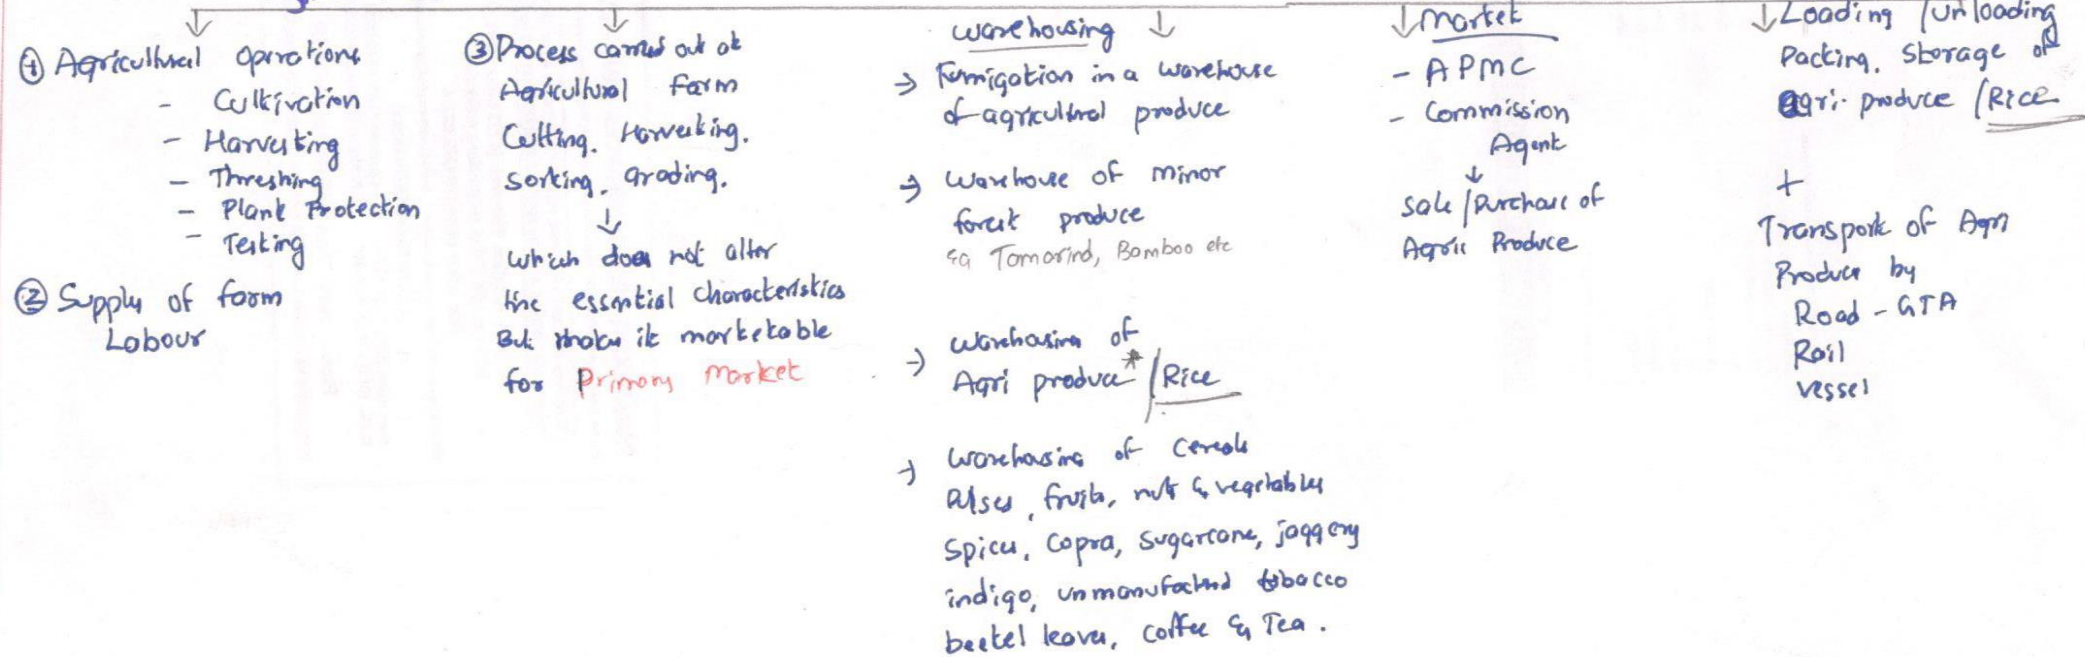 ① Agricultural Operations
- Cultivation
- Harvesting
- Threshing
- Plant Protection
- Testing
② Supply of farm
Labour
③ Process carried out at
Agricultural farm
Cutting, Harvesting,
Sorting, Grading,
↓
which does not alter
the essential characteristics
But makes it marketable
for Primary Market
Warehousing
→ Fumigation in a warehouse
of agricultural produce
→ Warehouse of minor
forest produce
Eg Tamarind, Bamboo etc
→ Warehousing of
Agri produce* / Rice
→ Warehousing of Cereals
Pulses, fruits, nuts & vegetables
Spices, Copra, Sugarcane, jaggery
indigo, unmanufactured tobacco
beetel leaves, Coffee & Tea.
Market
- APMC
- Commission
Agent
↓
Sale / Purchase of
Agri Produce
Loading / Unloading
Packing, Storage of
agri. produce / Rice
+
Transport of Agri
Produce by
Road - GTA
Rail
Vessel